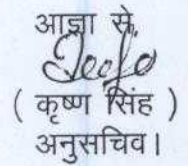 आज्ञा से,
( कृष्ण सिंह )
अनुसचिव।